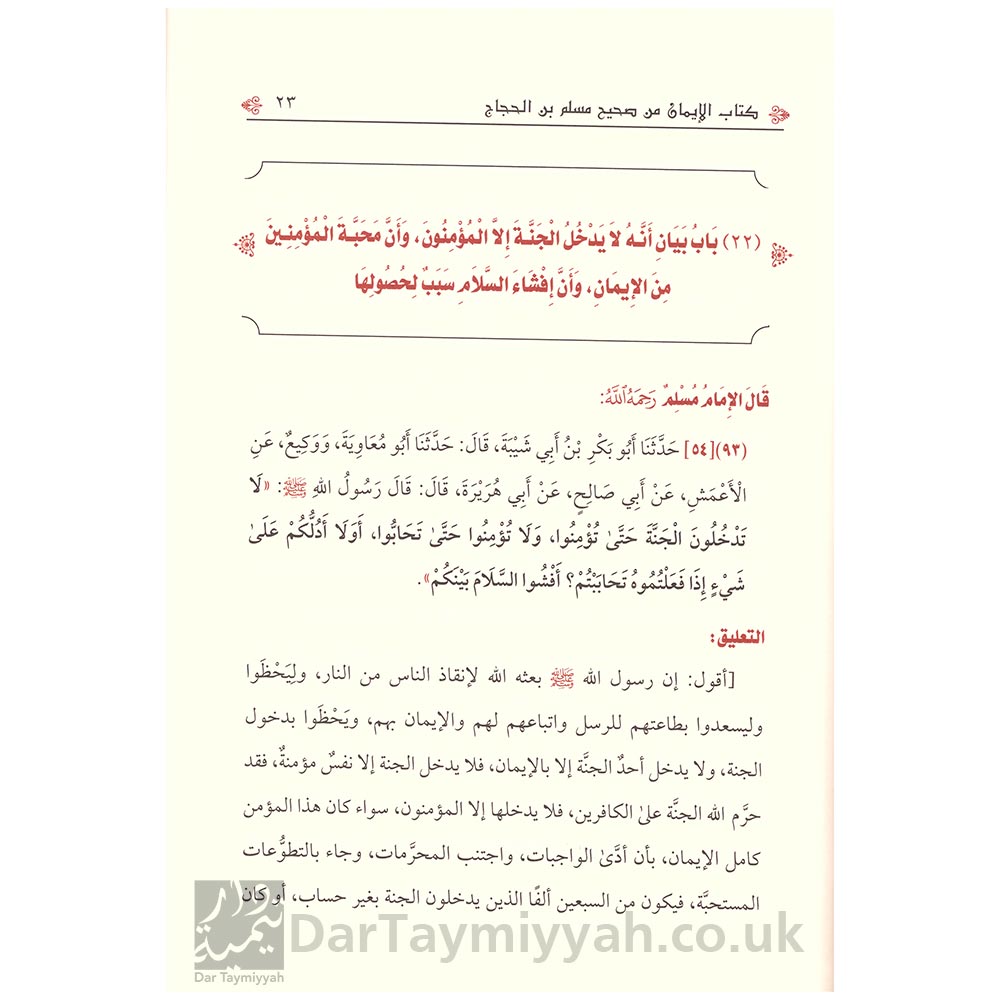 كتاب الإيمان من صحيح مسلم بن الحجاج ٢٣
(٢٢) بَابُ بَيَانِ أَنَّهُ لَا يَدْخُلُ الْجَنَّةَ إِلَّا الْمُؤْمِنُونَ، وَأَنَّ مَحَبَّةَ الْمُؤْمِنِينَ
مِنَ الإِيمَانِ، وَأَنَّ إِفْشَاءَ السَّلَامِ سَبَبٌ لِحُصُولِهَا
قَالَ الإِمَامُ مُسْلِمٌ رَحِمَهُ ٱللَّهُ:
(٩٣)[٥٤] حَدَّثَنَا أَبُو بَكْرِ بْنُ أَبِي شَيْبَةَ، قَالَ: حَدَّثَنَا أَبُو مُعَاوِيَةَ، وَوَكِيعٌ، عَنِ
الْأَعْمَشِ، عَنْ أَبِي صَالِحٍ، عَنْ أَبِي هُرَيْرَةَ، قَالَ: قَالَ رَسُولُ اللهِ ﷺ: «لَا
تَدْخُلُونَ الْجَنَّةَ حَتَّىٰ تُؤْمِنُوا، وَلَا تُؤْمِنُوا حَتَّىٰ تَحَابُّوا، أَوَلَا أَدُلُّكُمْ عَلَىٰ
شَيْءٍ إِذَا فَعَلْتُمُوهُ تَحَابَبْتُمْ؟ أَفْشُوا السَّلَامَ بَيْنَكُمْ».
التعليق:
[أقول: إن رسول الله ﷺ بعثه الله لإنقاذ الناس من النار، ولِيَحْظَوا
وليسعدوا بطاعتهم للرسل واتباعهم لهم والإيمان بهم، ويَحْظَوا بدخول
الجنة، ولا يدخل أحدٌ الجنَّة إلا بالإيمان، فلا يدخل الجنة إلا نفسٌ مؤمنةٌ، فقد
حرَّم الله الجنَّة علىٰ الكافرين، فلا يدخلها إلا المؤمنون، سواء كان هذا المؤمن
كامل الإيمان، بأن أدَّىٰ الواجبات، واجتنب المحرَّمات، وجاء بالتطوُّعات
المستحبَّة، فيكون من السبعين ألفًا الذين يدخلون الجنة بغير حساب، أو كان
دار تيمية
Dar Taymiyyah
DarTaymiyyah.co.uk